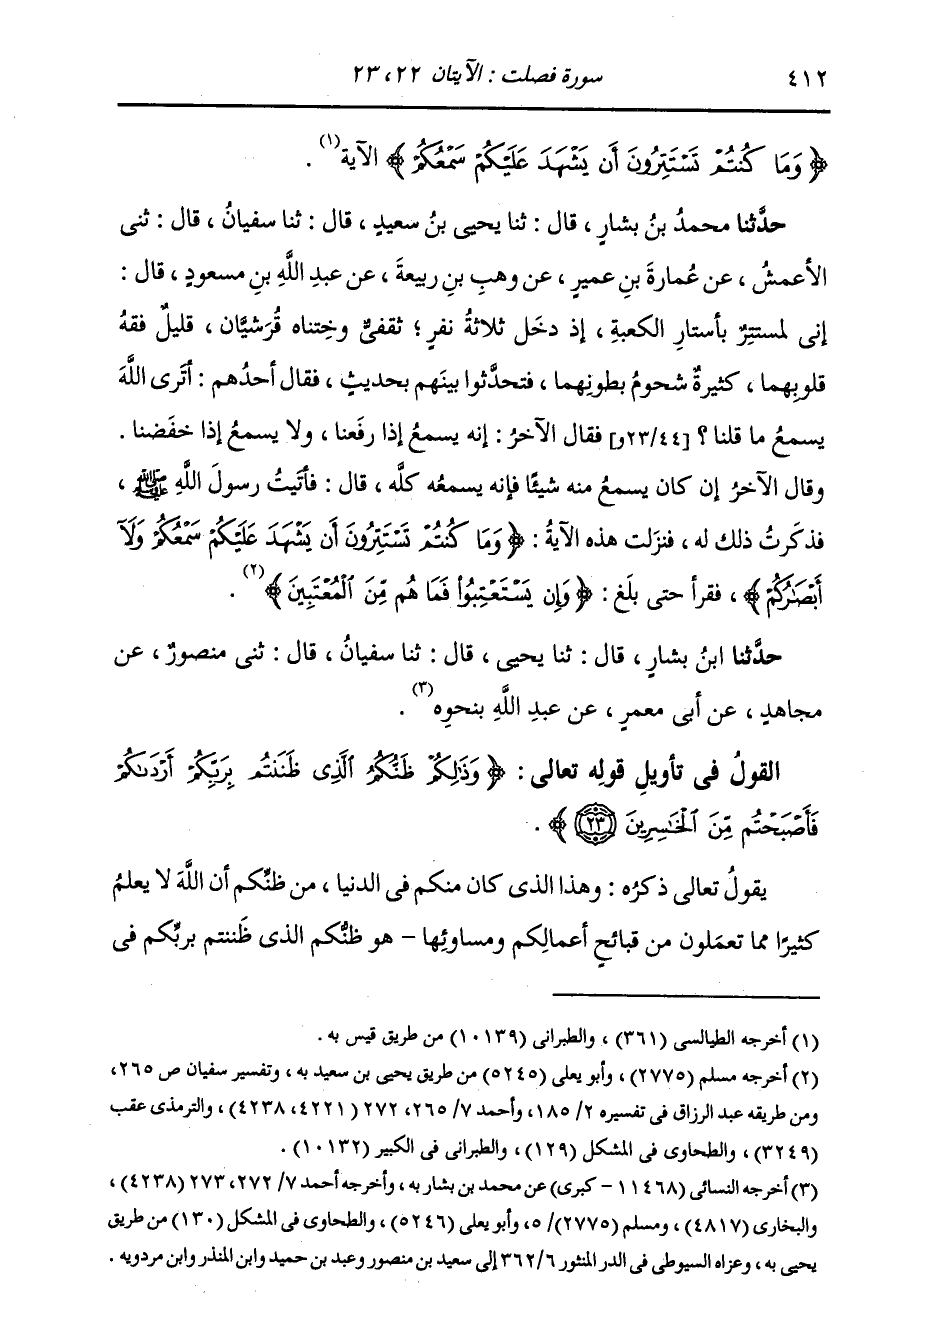 ٤١٢ سورة فصلت : الآيتان ٢٢ ، ٢٣
﴿ وَمَا كُنتُمْ تَسْتَتِرُونَ أَن يَشْهَدَ عَلَيْكُمْ سَمْعُكُمْ ﴾ الآية(١) .
حدَّثنا محمدُ بنُ بشارٍ ، قال : ثنا يحيى بنُ سعيدٍ ، قال : ثنا سفيانُ ، قال : ثنى
الأعمشُ ، عن عُمارةَ بنِ عميرٍ ، عن وهبِ بنِ ربيعةَ ، عن عبدِ اللَّهِ بنِ مسعودٍ ، قال :
إنى لمستتِرٌ بأستارِ الكعبةِ ، إذ دخَل ثلاثةُ نفرٍ ؛ ثقفىٌّ وختناه قُرَشيَّان ، قليلٌ فقهُ
قلوبِهما ، كثيرةٌ شحومُ بطونِهما ، فتحدَّثوا بينَهم بحديثٍ ، فقال أحدُهم : أتَرى اللَّهَ
يسمعُ ما قلنا ؟ [٢٣/٤٤و] فقال الآخرُ : إنه يسمعُ إذا رفَعنا ، ولا يسمعُ إذا خفَضنا .
وقال الآخرُ إن كان يسمعُ منه شيئًا فإنه يسمعُه كلَّه ، قال : فأتَيتُ رسولَ اللَّهِ ﷺ ،
فذكَرتُ ذلك له ، فنزَلت هذه الآيةُ : ﴿ وَمَا كُنتُمْ تَسْتَتِرُونَ أَن يَشْهَدَ عَلَيْكُمْ سَمْعُكُمْ وَلَآ
أَبْصَٰرُكُمْ ﴾ ، فقرأ حتى بلَغ : ﴿ وَإِن يَسْتَعْتِبُوا۟ فَمَا هُم مِّنَ ٱلْمُعْتَبِينَ ﴾(٢) .
حدَّثنا ابنُ بشارٍ ، قال : ثنا يحيى ، قال : ثنا سفيانُ ، قال : ثنى منصورٌ ، عن
مجاهدٍ ، عن أبى معمرٍ ، عن عبدِ اللَّهِ بنحوِه(٣) .
القولُ فى تأويلِ قولِه تعالى : ﴿ وَذَٰلِكُمْ ظَنُّكُمُ ٱلَّذِى ظَنَنتُم بِرَبِّكُمْ أَرْدَىٰكُمْ
فَأَصْبَحْتُم مِّنَ ٱلْخَٰسِرِينَ ٢٣ ﴾ .
يقولُ تعالى ذكرُه : وهذا الذى كان منكم فى الدنيا ، من ظنِّكم أن اللَّهَ لا يعلمُ
كثيرًا مما تعمَلون من قبائحِ أعمالِكم ومساوئِها – هو ظنُّكم الذى ظَننتم بربِّكم فى
(١) أخرجه الطيالسى (٣٦١) ، والطبرانى (١٠١٣٩) من طريق قيس به .
(٢) أخرجه مسلم (٢٧٧٥) ، وأبو يعلى (٥٢٤٥) من طريق يحيى بن سعيد به ، وتفسير سفيان ص ٢٦٥ ،
ومن طريقه عبد الرزاق فى تفسيره ٢/ ١٨٥ ، وأحمد ٧/ ٢٦٥ ، ٢٧٢ (٤٢٢١ ، ٤٢٣٨) ، والترمذى عقب
(٣٢٤٩) ، والطحاوى فى المشكل (١٢٩) ، والطبرانى فى الكبير (١٠١٣٢) .
(٣) أخرجه النسائى (١١٤٦٨ – كبرى) عن محمد بن بشار به ، وأخرجه أحمد ٧/ ٢٧٢ ، ٢٧٣ (٤٢٣٨) ،
والبخارى (٤٨١٧) ، ومسلم (٢٧٧٥)/ ٥ ، وأبو يعلى (٥٢٤٦) ، والطحاوى فى المشكل (١٣٠) من طريق
يحيى به ، وعزاه السيوطى فى الدر المنثور ٣٦٢/٦ إلى سعيد بن منصور وعبد بن حميد وابن المنذر وابن مردويه .